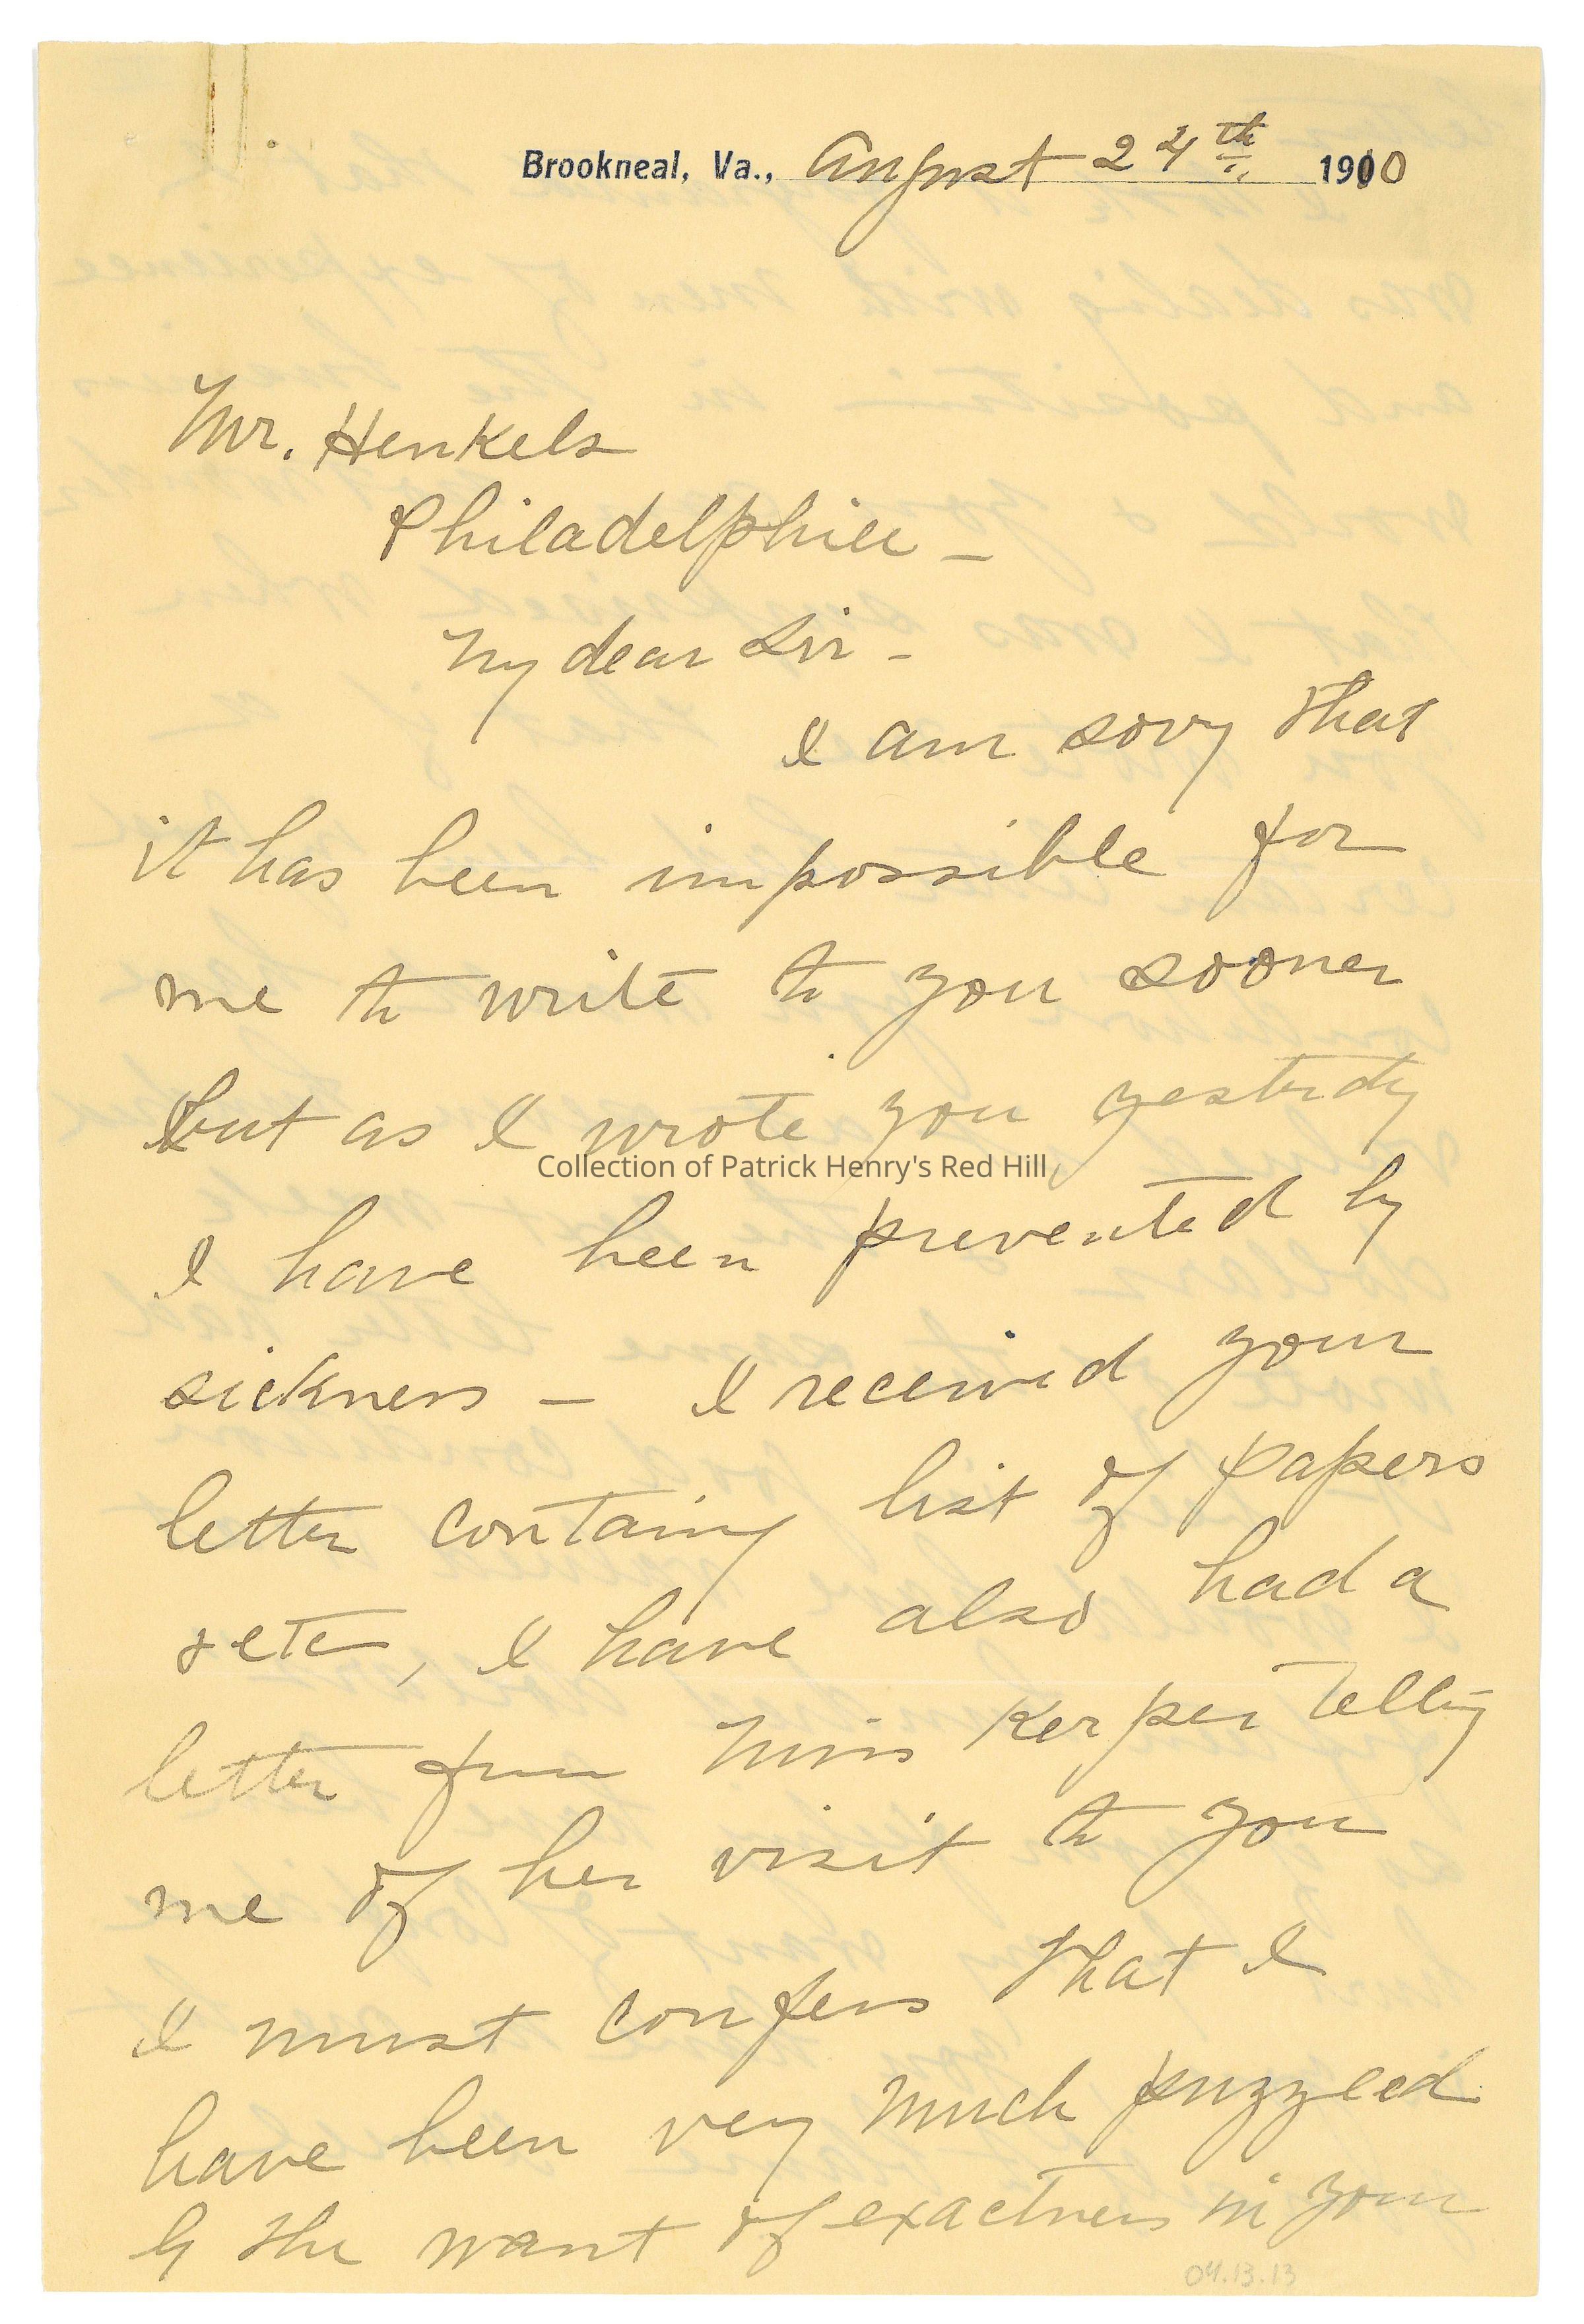 Brookneal, Va., August 24th 1910
Mr. Henkels
Philadelphia –
My dear Sir –
I am sorry that
it has been impossible for
me to write to you sooner
but as I wrote you yesterday
Collection of Patrick Henry's Red Hill
I have been prevented by
sickness – I received your
letter containing list of papers
& etc, I have also had a
letter from Miss Kerper telling
me of her visit to you
I must confess that I
have been very much puzzled
by the want of exactness in your
04.13.13